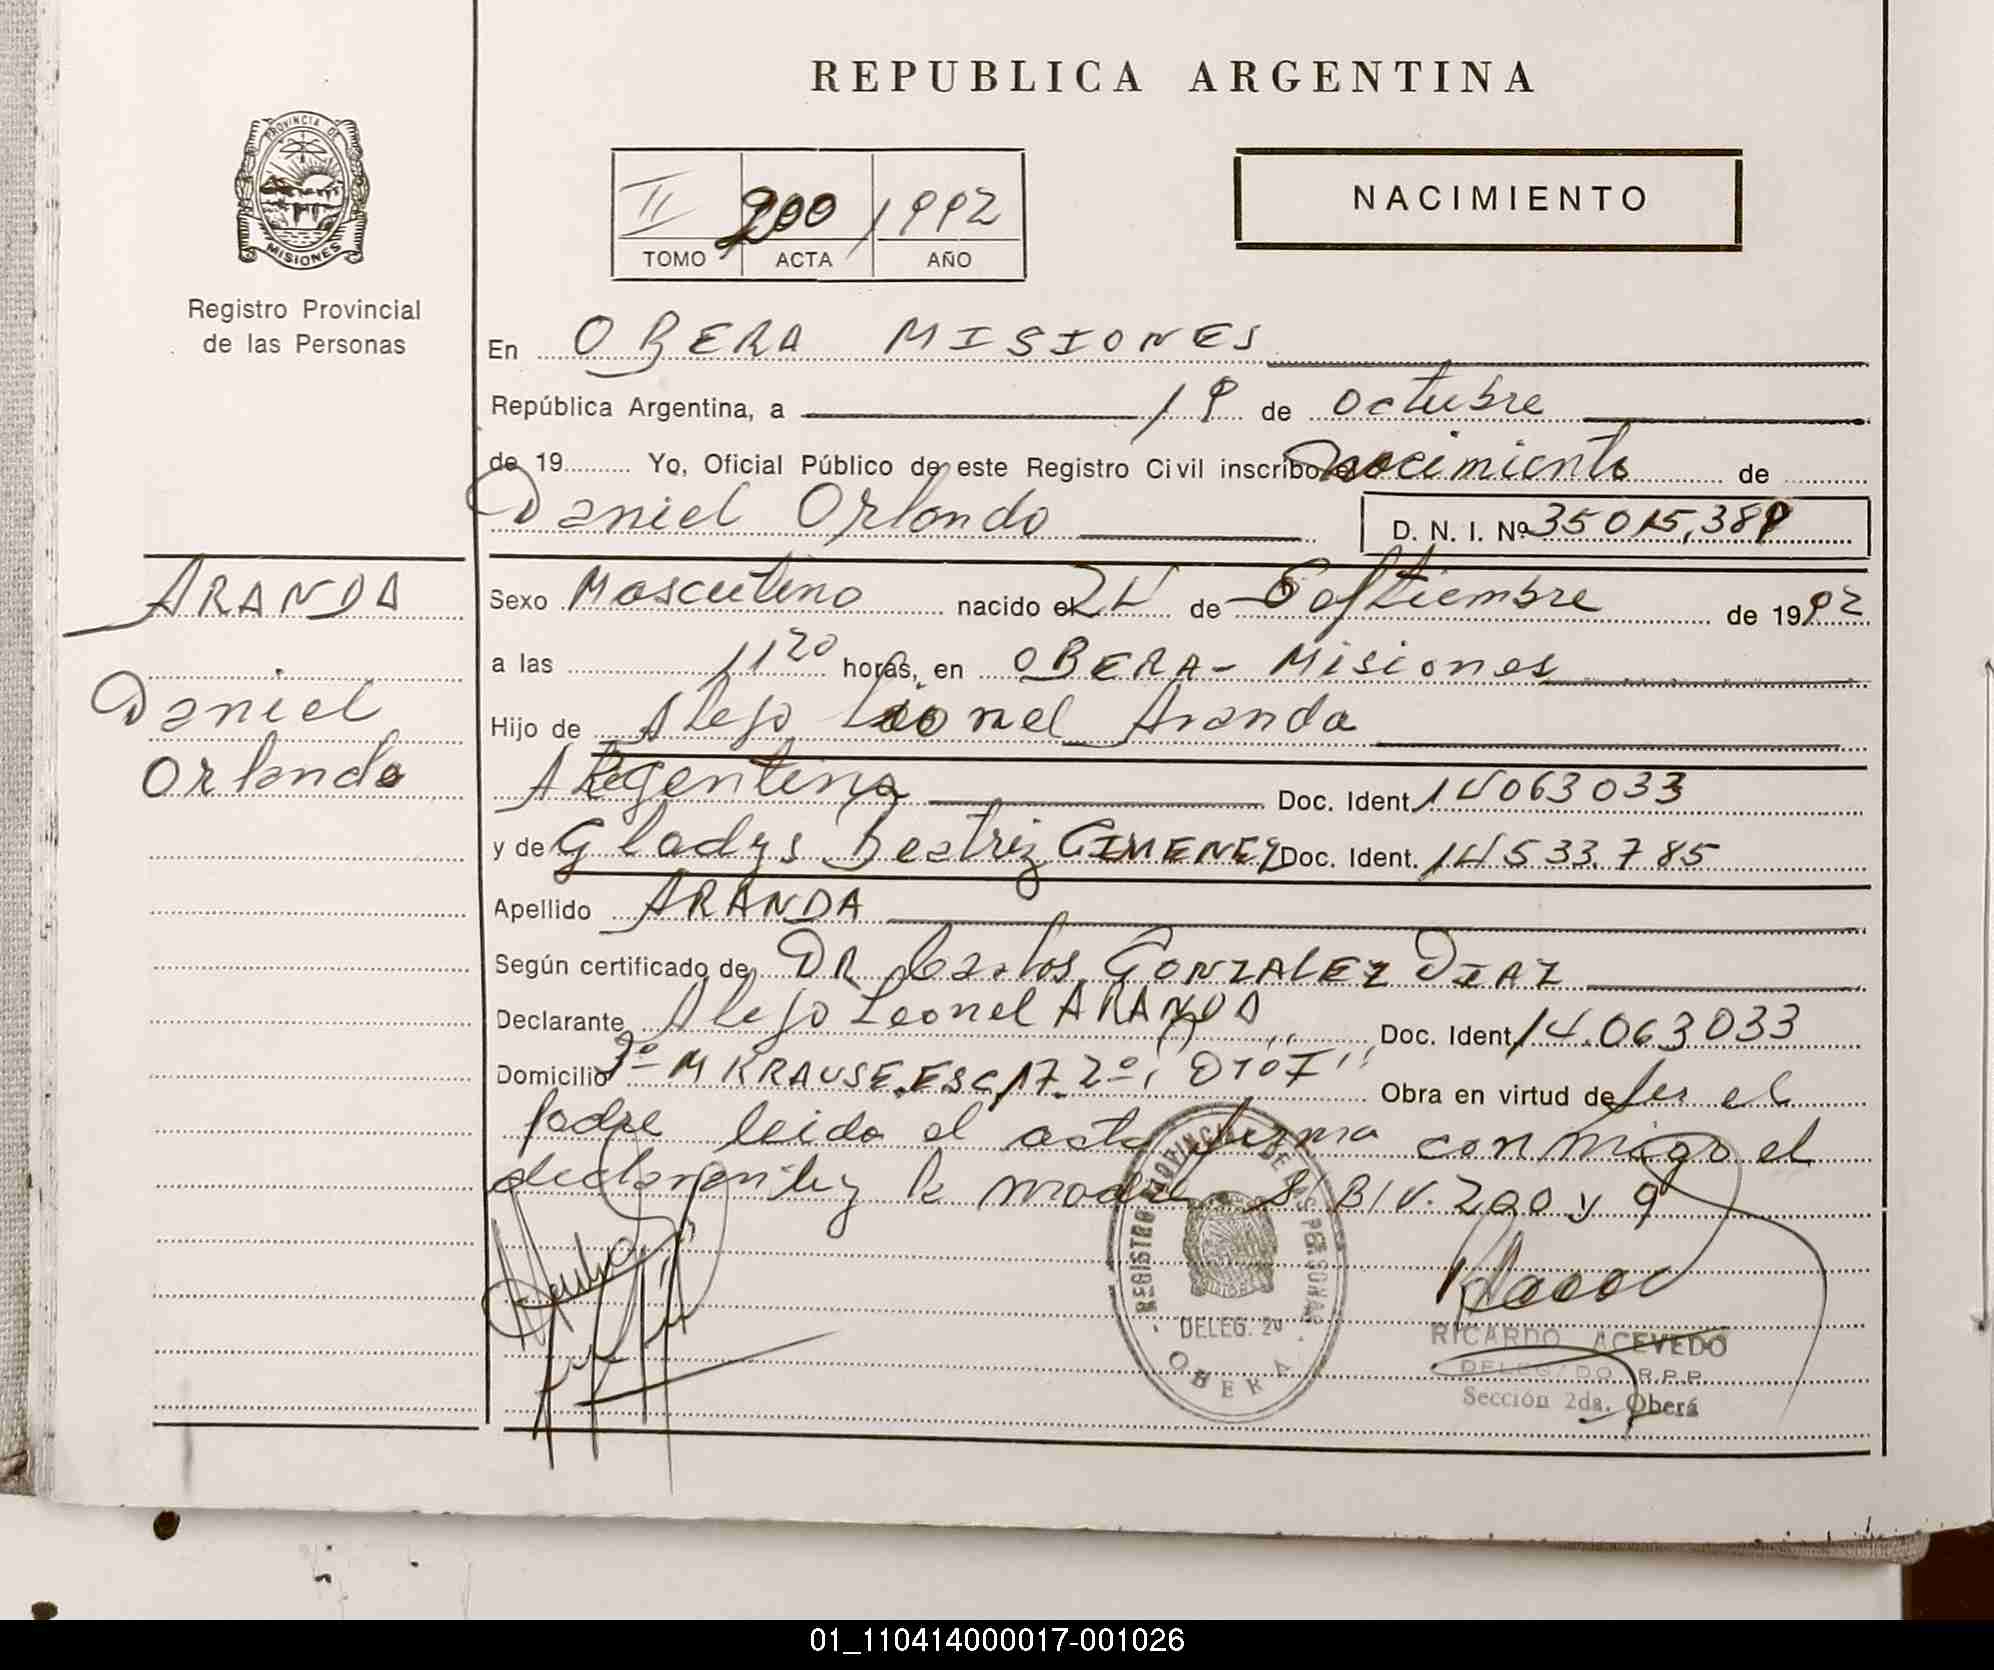 REPUBLICA ARGENTINA
PROVINCIA DE
MISIONES
Registro Provincial
de las Personas
II 200 1992
TOMO ACTA AÑO
NACIMIENTO
En OBERA MISIONES
República Argentina, a 19 de octubre
de 19 Yo, Oficial Público de este Registro Civil inscribo el nacimiento de
Daniel Orlando D. N. I. Nº 35015,389
ARANDA
Daniel
Orlando
Sexo Masculino nacido el 24 de Septiembre de 1992
a las 11 20 horas, en OBERA - Misiones
Hijo de Alejo Leonel Aranda
Argentina Doc. Ident. 14063033
y de Gladys Beatriz GIMENEZ Doc. Ident. 14533.785
Apellido ARANDA
Según certificado de DR Carlos GONZALEZ DIAZ
Declarante Alejo Leonel ARANDA Doc. Ident. 14.063033
Domicilio M KRAUSE ESC 17 2º "DTO F" Obra en virtud de ser el
padre leido el acta firma conmigo el
declarante y la madre S/B/V. 200 y 9
REGISTRO PROVINCIAL DE LAS PERSONAS
DELEG. 2º
OBERA
RICARDO ACEVEDO
DELEGADO R.P.P.
Sección 2da. Oberá
01_110414000017-001026